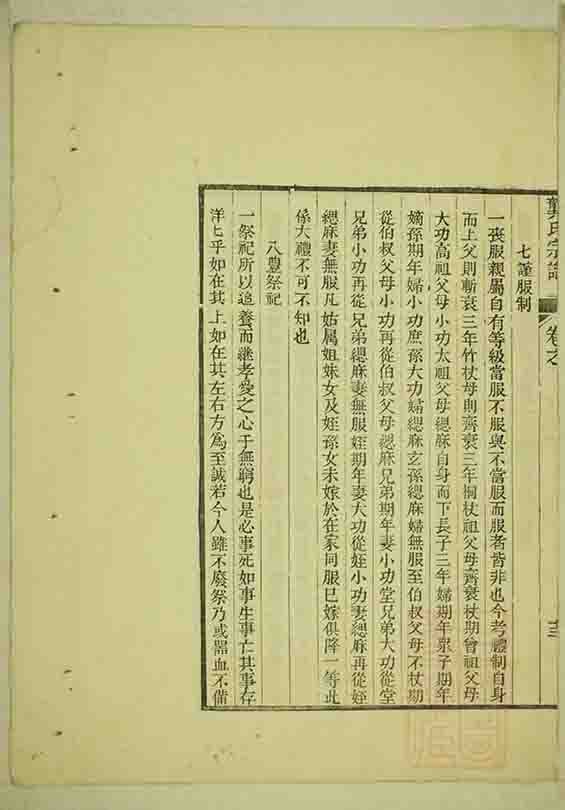 龔氏宗譜 卷之 十三
七謹服制
一喪服親屬自有等級當服不服與不當服而服者皆非也今考禮制自身
而上父則斬衰三年竹杖母則齊衰三年桐杖祖父母齊衰杖期曾祖父母
大功高祖父母小功太祖父母緦麻自身而下長子三年婦期年衆子期年
嫡孫期年婦小功庶孫大功婦緦麻玄孫緦麻婦無服至伯叔父母不杖期
從伯叔父母小功再從伯叔父母緦麻兄弟期年妻小功堂兄弟大功從堂
兄弟小功再從兄弟緦麻妻無服姪期年妻大功從姪小功妻緦麻再從姪
緦麻妻無服凡姑属姐妹女及姪孫女未嫁於在家同服已嫁俱降一等此
係大禮不可不知也
八豊祭祀
一祭祀所以追養而繼孝愛之心于無窮也是必事死如事生事亡其事存
洋匕乎如在其上如在其左右方爲至誠若今人雖不廢祭乃或器血不備